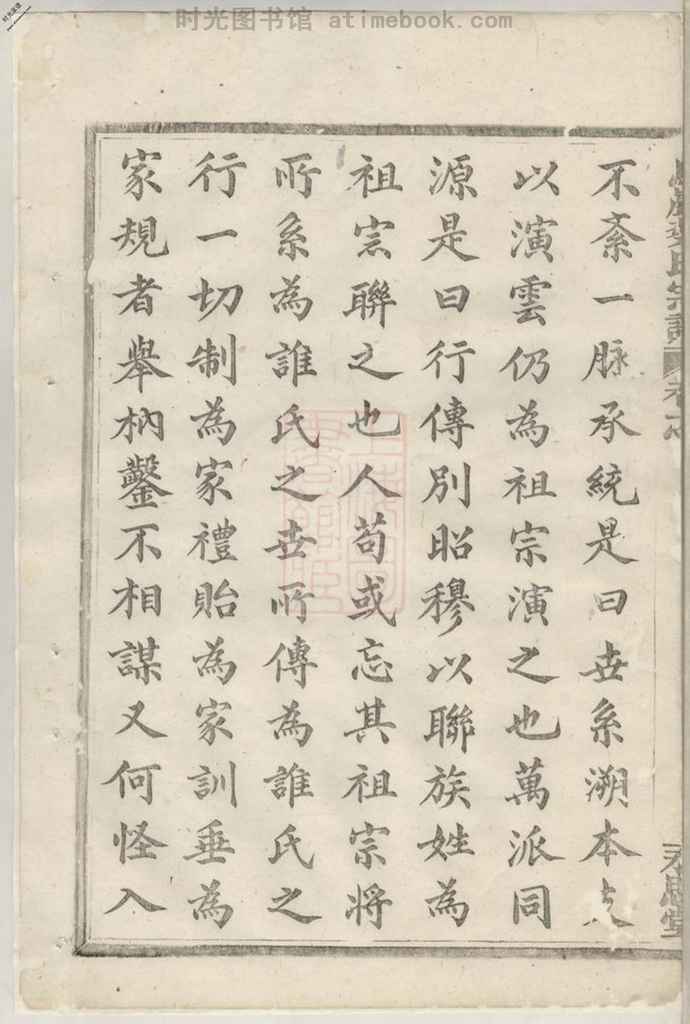 时光图书馆 atimebook.com
不紊一脉承統是曰世系溯本支
以演雲仍為祖宗演之也萬派同
源是曰行傳別昭穆以聯族姓為
祖宗聯之也人苟或忘其祖宗將
所系為誰氏之世所傳為誰氏之
行一切制為家禮貽為家訓垂為
家規者舉枘鑿不相謀又何怪入